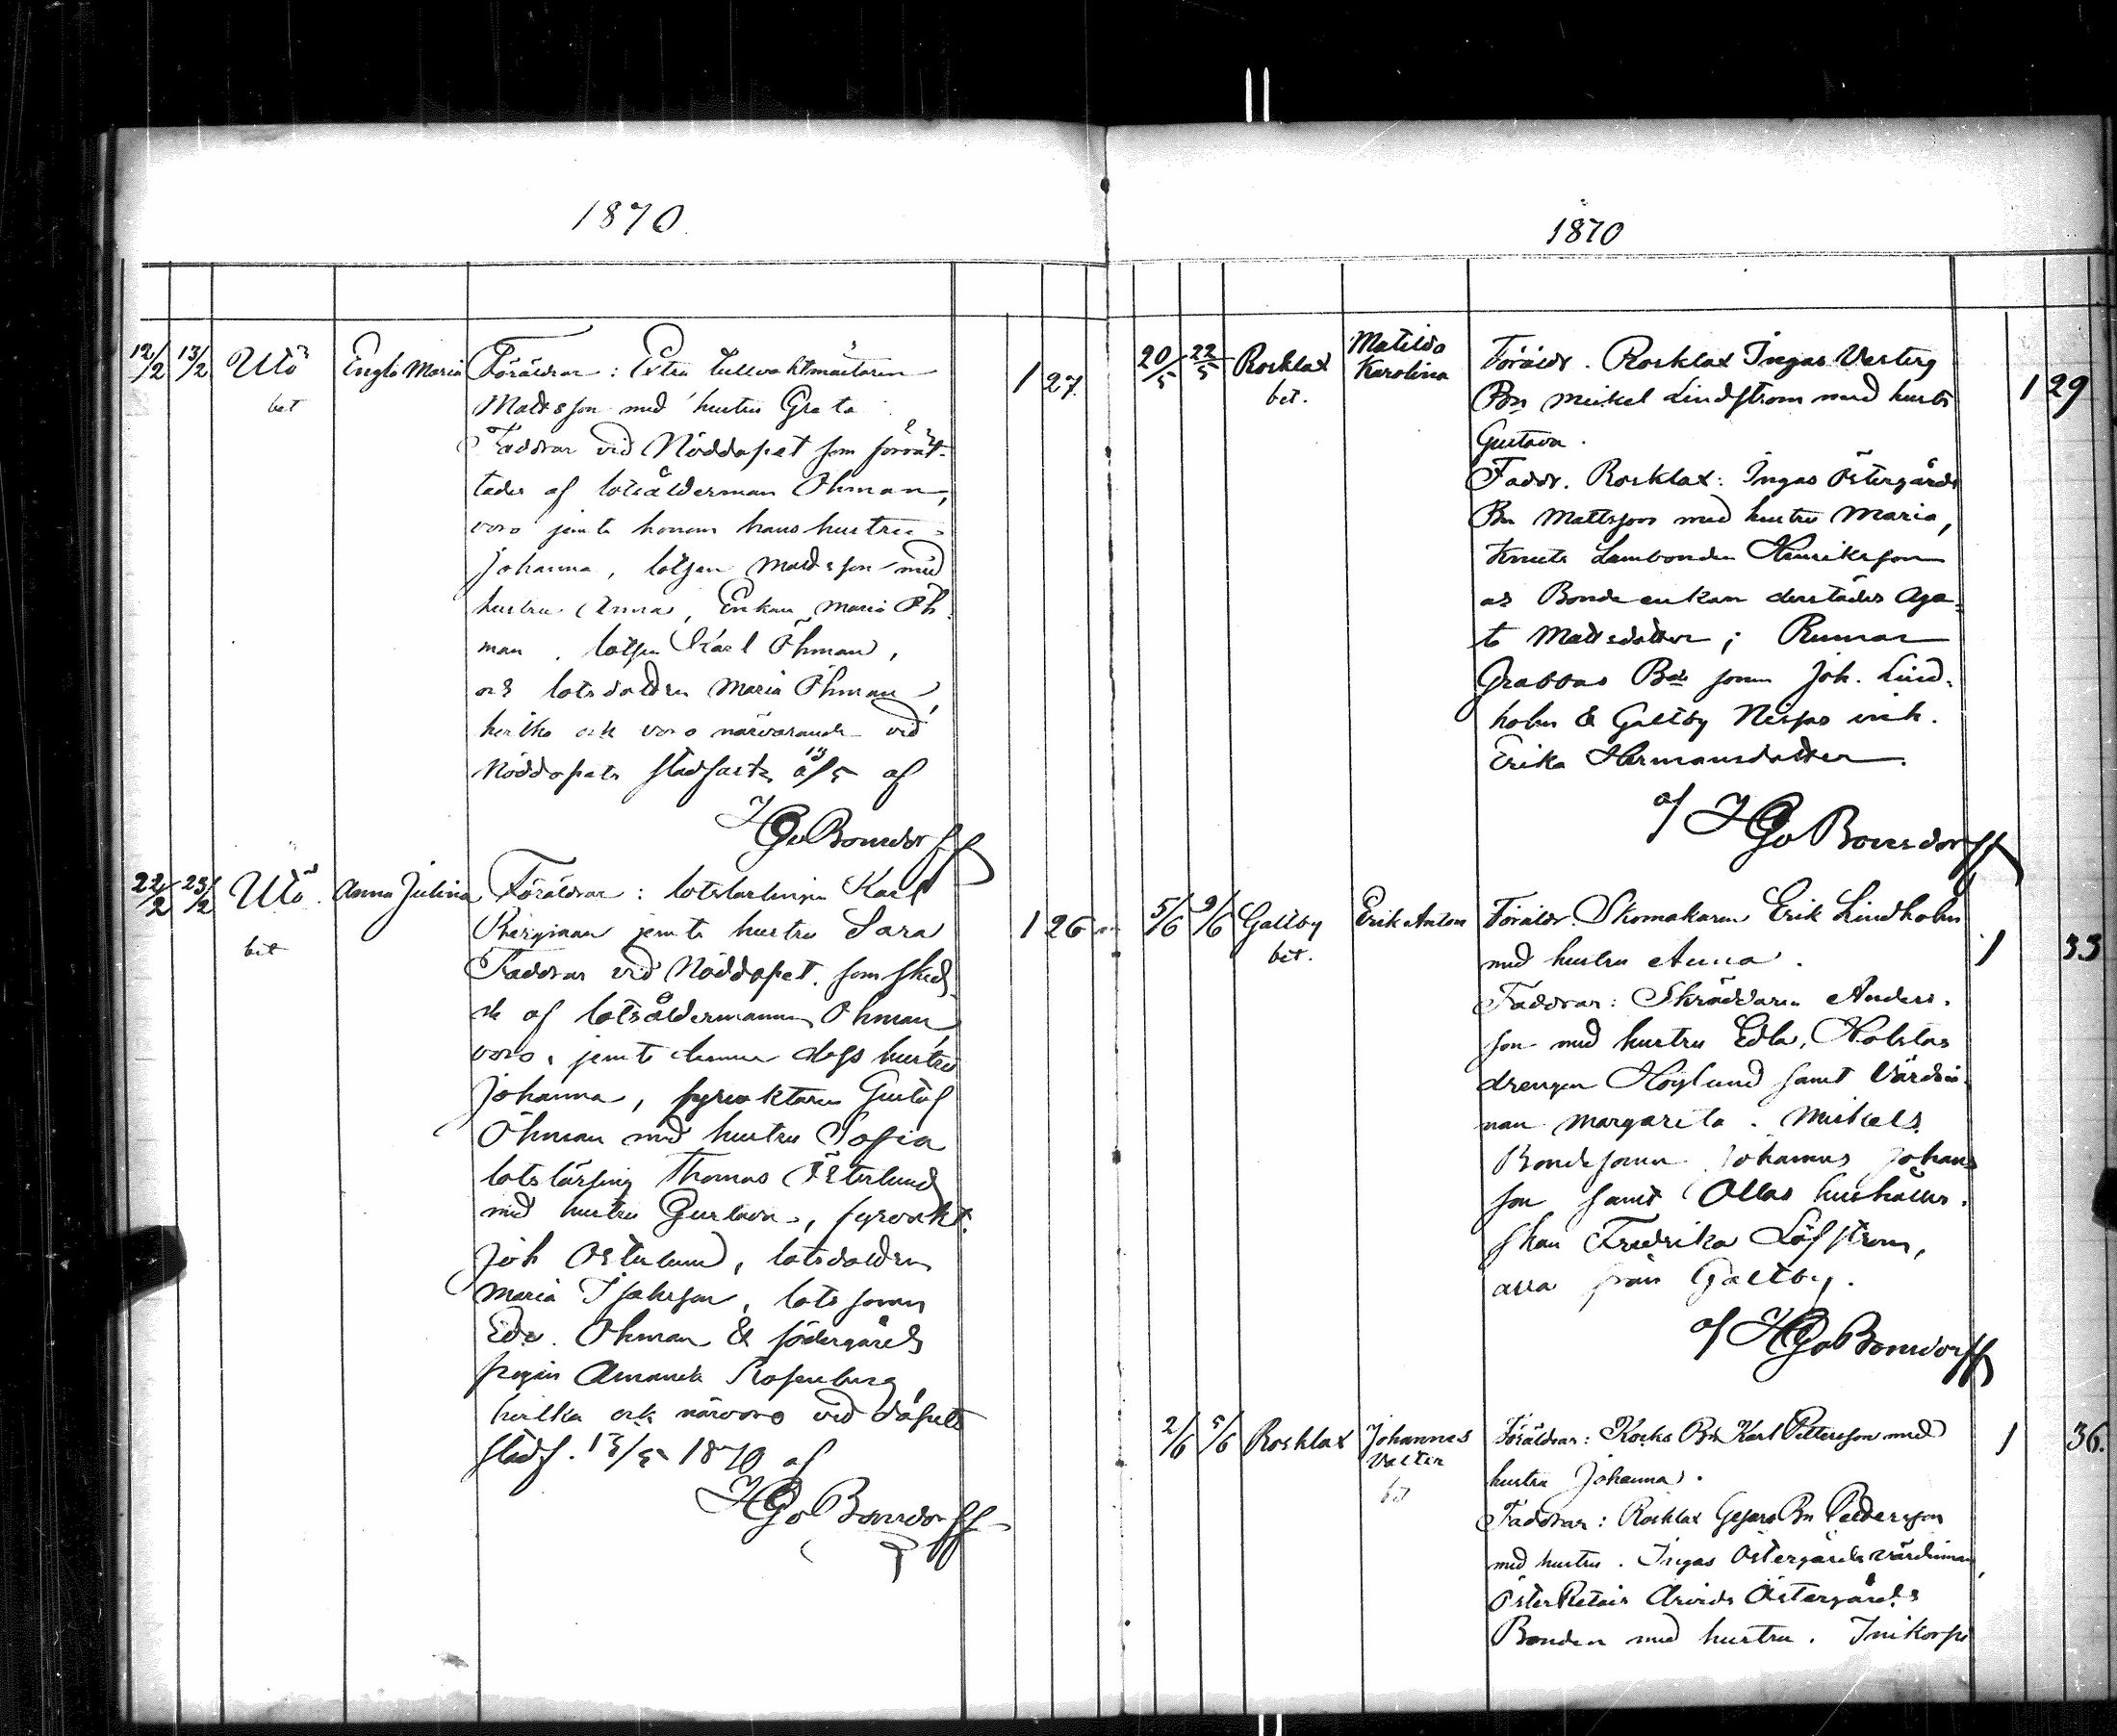 1870
12/2 13/2 Utö Engla Maria Föräldrar: Extra tullvaktmästaren 1 27.
bet Mattsson med hustru Greta
Faddrar vid Nöddopet som förrät-
tades af lotsålderman Öhman,
voro jemte honom hans hustru
Johanna, lotsen Mattsson med
hustru Anna, Enkan Maria Öh
man, lotsen Karl Öhman,
och lotsdottren Maria Öhman,
hvilka ock voro närvarande vid
Nöddopets stadfäste 13/5 af
HGvBonsdorff
22/2 23/2 Utö Anna Julina Föräldrar: lotslärlingen Karl
bet Bergman jemte hustru Sara 1 26
Faddrar vid Nöddopet som sked
de af lotsåldermannen Öhman,
voro, jemte denne dess hustru
Johanna, fyrvaktaren Gustaf
Öhman med hustru Sofia
lotslärling Thomas Österlund
med hustru Gustava, fyrvakt.
Joh Österlund, lotsdottren
Maria, lotssonen
Edv. Öhman & Södergårds
pigan Amanda Rosenberg
hvilka ock närvoro vid döpets
stadf. 13/5 1870 af
HGvBonsdorff
1870
20/5 22/5 Rosklax Matilda Föräldr. Rosklax Ingas Westerg
bet. Karolina Bn Mickel Lindström med hustr 1 29
Gustava.
Faddr. Rosklax: Ingas Östergårds
Bn Mattsson med hustru Maria,
Knuts Henriksson
as Bondeenkan derstädes Aga-
ta Mattsdotter; Rumar
Grabbas Bde sonen Joh. Lind-
holm & Galtby Nisjas
Erika Hermansdotter.
af HGvBonsdorff
5/6 9/6 Galtby Erik Anton Föräldr. Skomakaren Erik Lindholm
bet. med hustru Anna. 1 33
Faddrar: Skräddaren Anders-
son med hustru Edla, Nolstas
drengen Höglund samt Värdin-
nan Margareta. Mickels
Bondesonen Johannes Johans
son samt Ollas hushåller-
skan Fredrika Löfström,
alla från Galtby.
af HGvBonsdorff
2/6 5/6 Rosklax Johannes Föräldrar: Kocks Bn Karl Pettersson med 1 36.
Valter hustru Johanna.
bet Faddrar: Rosklax Bn Pettersson
med hustru. Ingas Östergårds värdinnan,
Österretais Arvids Östergårds
Bonden med hustru.